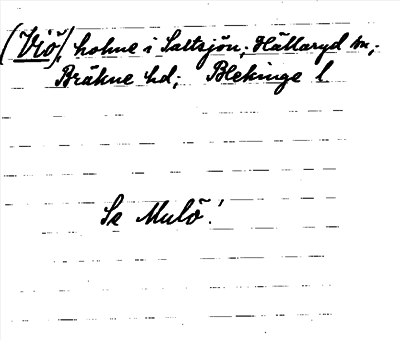 (Viö), holme i Saltsjön; Hällaryd sn;
Bräkne hd; Blekinge l
Se Mulö!